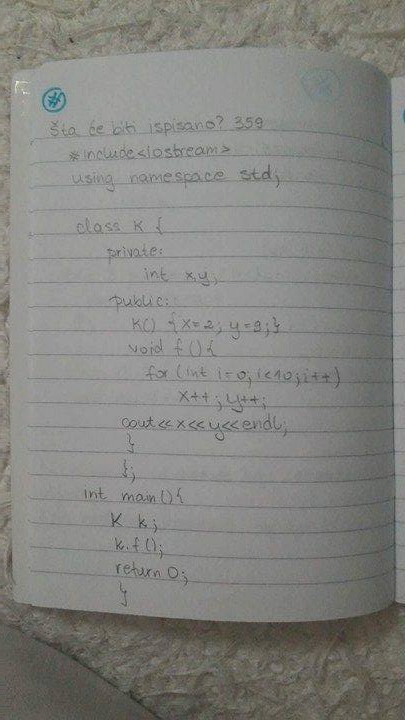 Šta će biti ispisano? 359
#include<iostream>
using namespace std;
class K {
private:
int x,y;
public:
K() {x=2; y=9;}
void f(){
for(int i=0;i<10;i++)
x++; y++;
cout<<x<<y<<endl;
}
};
int main(){
K k;
k.f();
return 0;
}